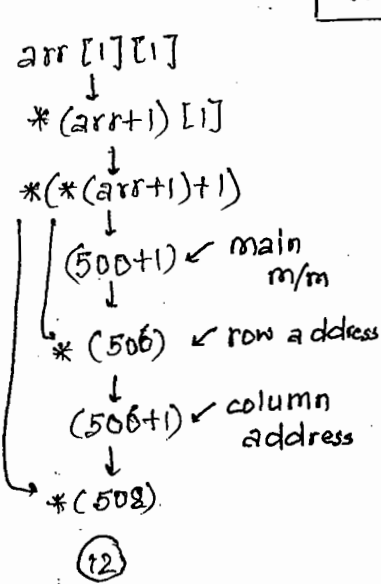 arr [1] [1]
↓
*(arr+1) [1]
↓
*(*(arr+1)+1)
↓
(500+1) ↙ main m/m
↓
* (506) ↙ row address
↓
(506+1) ↙ column address
↓
*(508)
12